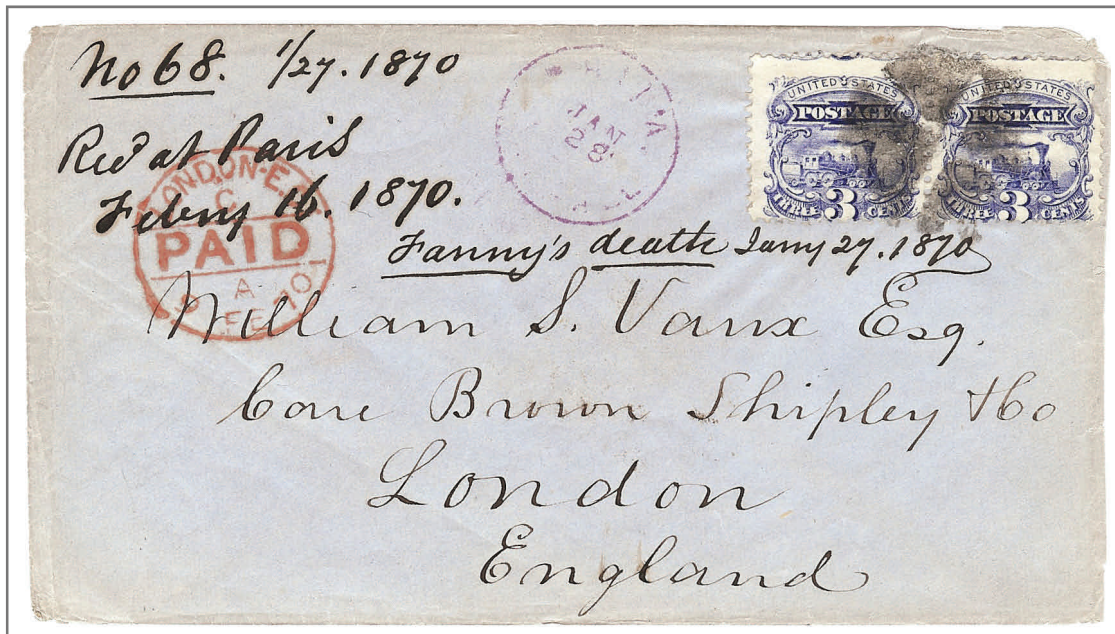 No 68. 1/27. 1870
Recd at Paris
Febry 16. 1870.
PHILA.
JAN
28
LONDON-E.C
C
PAID
A
FE 70
UNITED STATES
POSTAGE
THREE 3 CENTS
UNITED STATES
POSTAGE
THREE 3 CENTS
Fanny's death Jany 27. 1870
William S. Vaux Esq.
Care Brown Shipley & Co
London
England